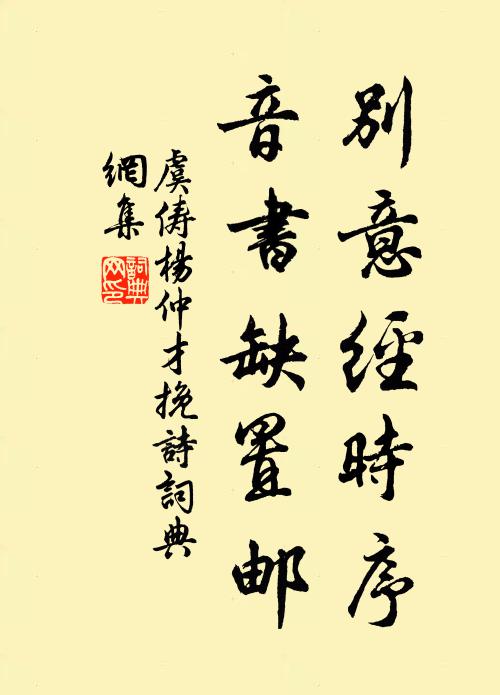 别意經時序
音書缺置邮
虞俦楊仲才挽詩詞典
網集
詞典
网印